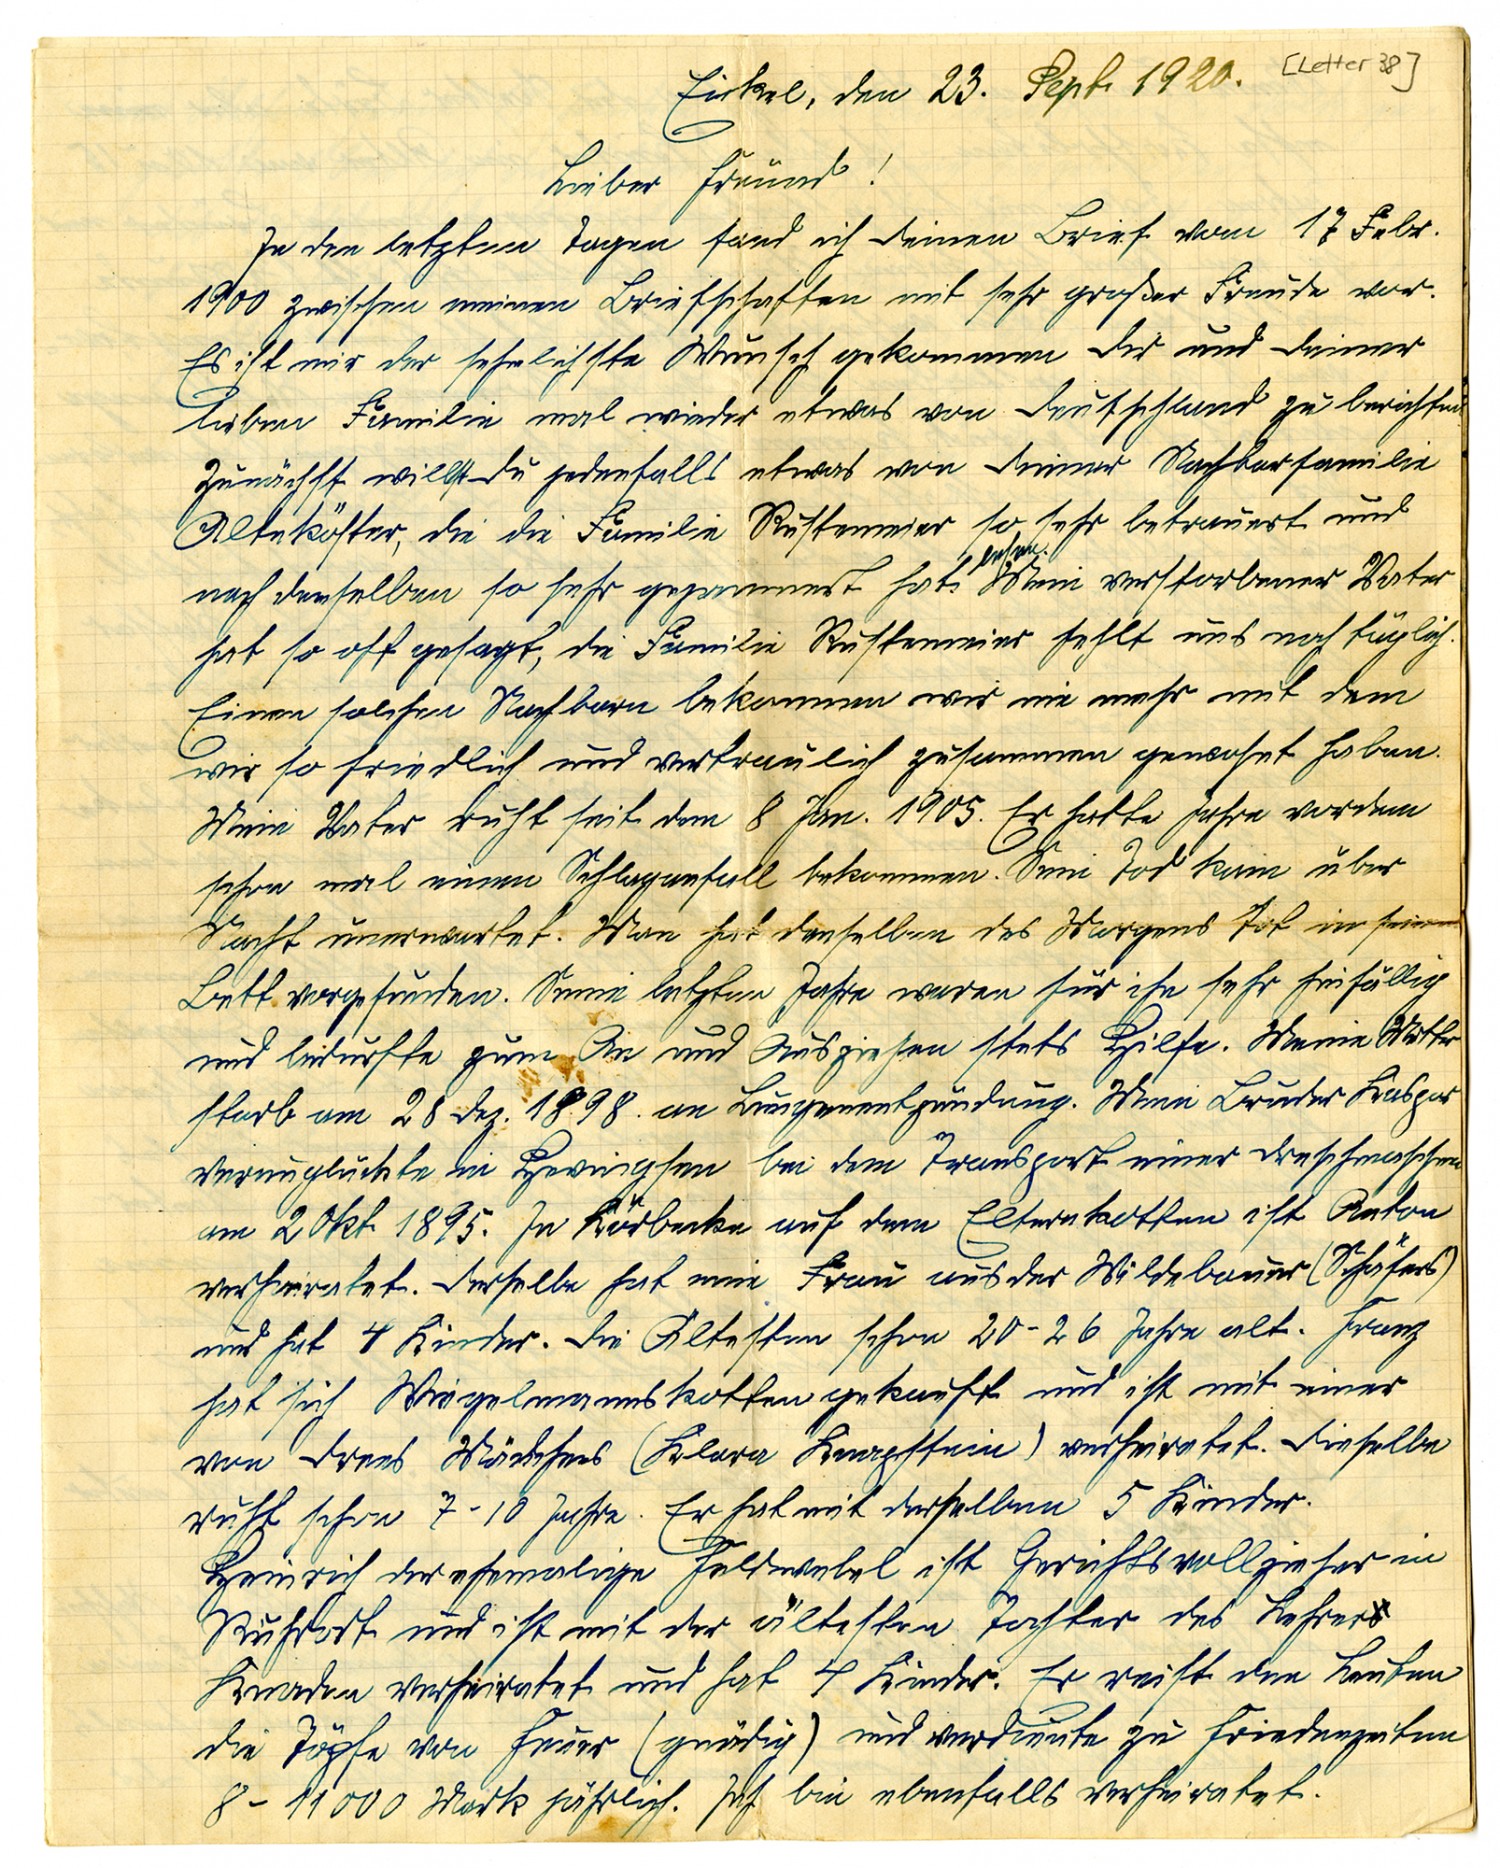 [Letter 38]
Eickel, den 23. Sept. 1920.
Lieber Freund!
In den letzten Tagen fand ich deinen Brief vom 17 Febr.
1900 zwischen meinen Briefschaften mit sehr großer Freude vor.
Es ist mir der sehnlichste Wunsch gekommen dir und deiner
lieben Familie mal wieder etwas von Deutschland zu berichten.
Zunächst willst du jedenfalls etwas von deiner Nachbarfamilie
Alteköster, die die Familie Rustemeier so sehr betrauert und
nach denselben so sehr gejammert hat, hören. Mein verstorbener Vater
hat so oft gesagt, die Familie Rustemeier fehlt uns noch täglich.
Einen solchen Nachbarn bekommen wir nie mehr mit dem
wir so friedlich und vertraulich zusammen gewohnt haben.
Mein Vater ruht seit dem 8 Jan. 1905. Er hatte Jahre vordem
schon mal einen Schlaganfall bekommen. Sein Tod kam über
Nacht unerwartet. Man hat denselben des Morgens Tot in seinem
Bett vorgefunden. Seine letzten Jahre waren für ihn sehr hinfällig
und bedurfte zum An und Ausziehen stets Hilfe. Meine Mutter
starb am 28 Dez. 1898 an Lungenentzündung. Mein Bruder Kaspar
verunglückte in Hevingsen bei dem Transport einer Dreschmaschine
am 2 Okt 1895. In Körbecke auf dem Elternkotten ist Anton
verheiratet. Derselbe hat eine Frau aus der Wildebauer (Schäfers)
und hat 4 Kinder. Die Ältesten schon 20-26 Jahre alt. Franz
hat sich Wiegelmannskotten gekauft und ist mit einer
von Drees Mädchens (Klara Knapstein) verheiratet. Dieselbe
ruht schon 7-10 Jahre. Er hat mit derselben 5 Kinder.
Heinrich der ehemalige Feldwebel ist Gerichtsvollzieher in
Ruhrort und ist mit der ältesten Tochter des Lehrers
Knaden verheiratet und hat 4 Kinder. Er reist den Leuten
die Töpfe von Feuer (gnädig) und verdiente zu Friedenzeiten
8-11000 Mark jährlich. Ich bin ebenfalls verheiratet.